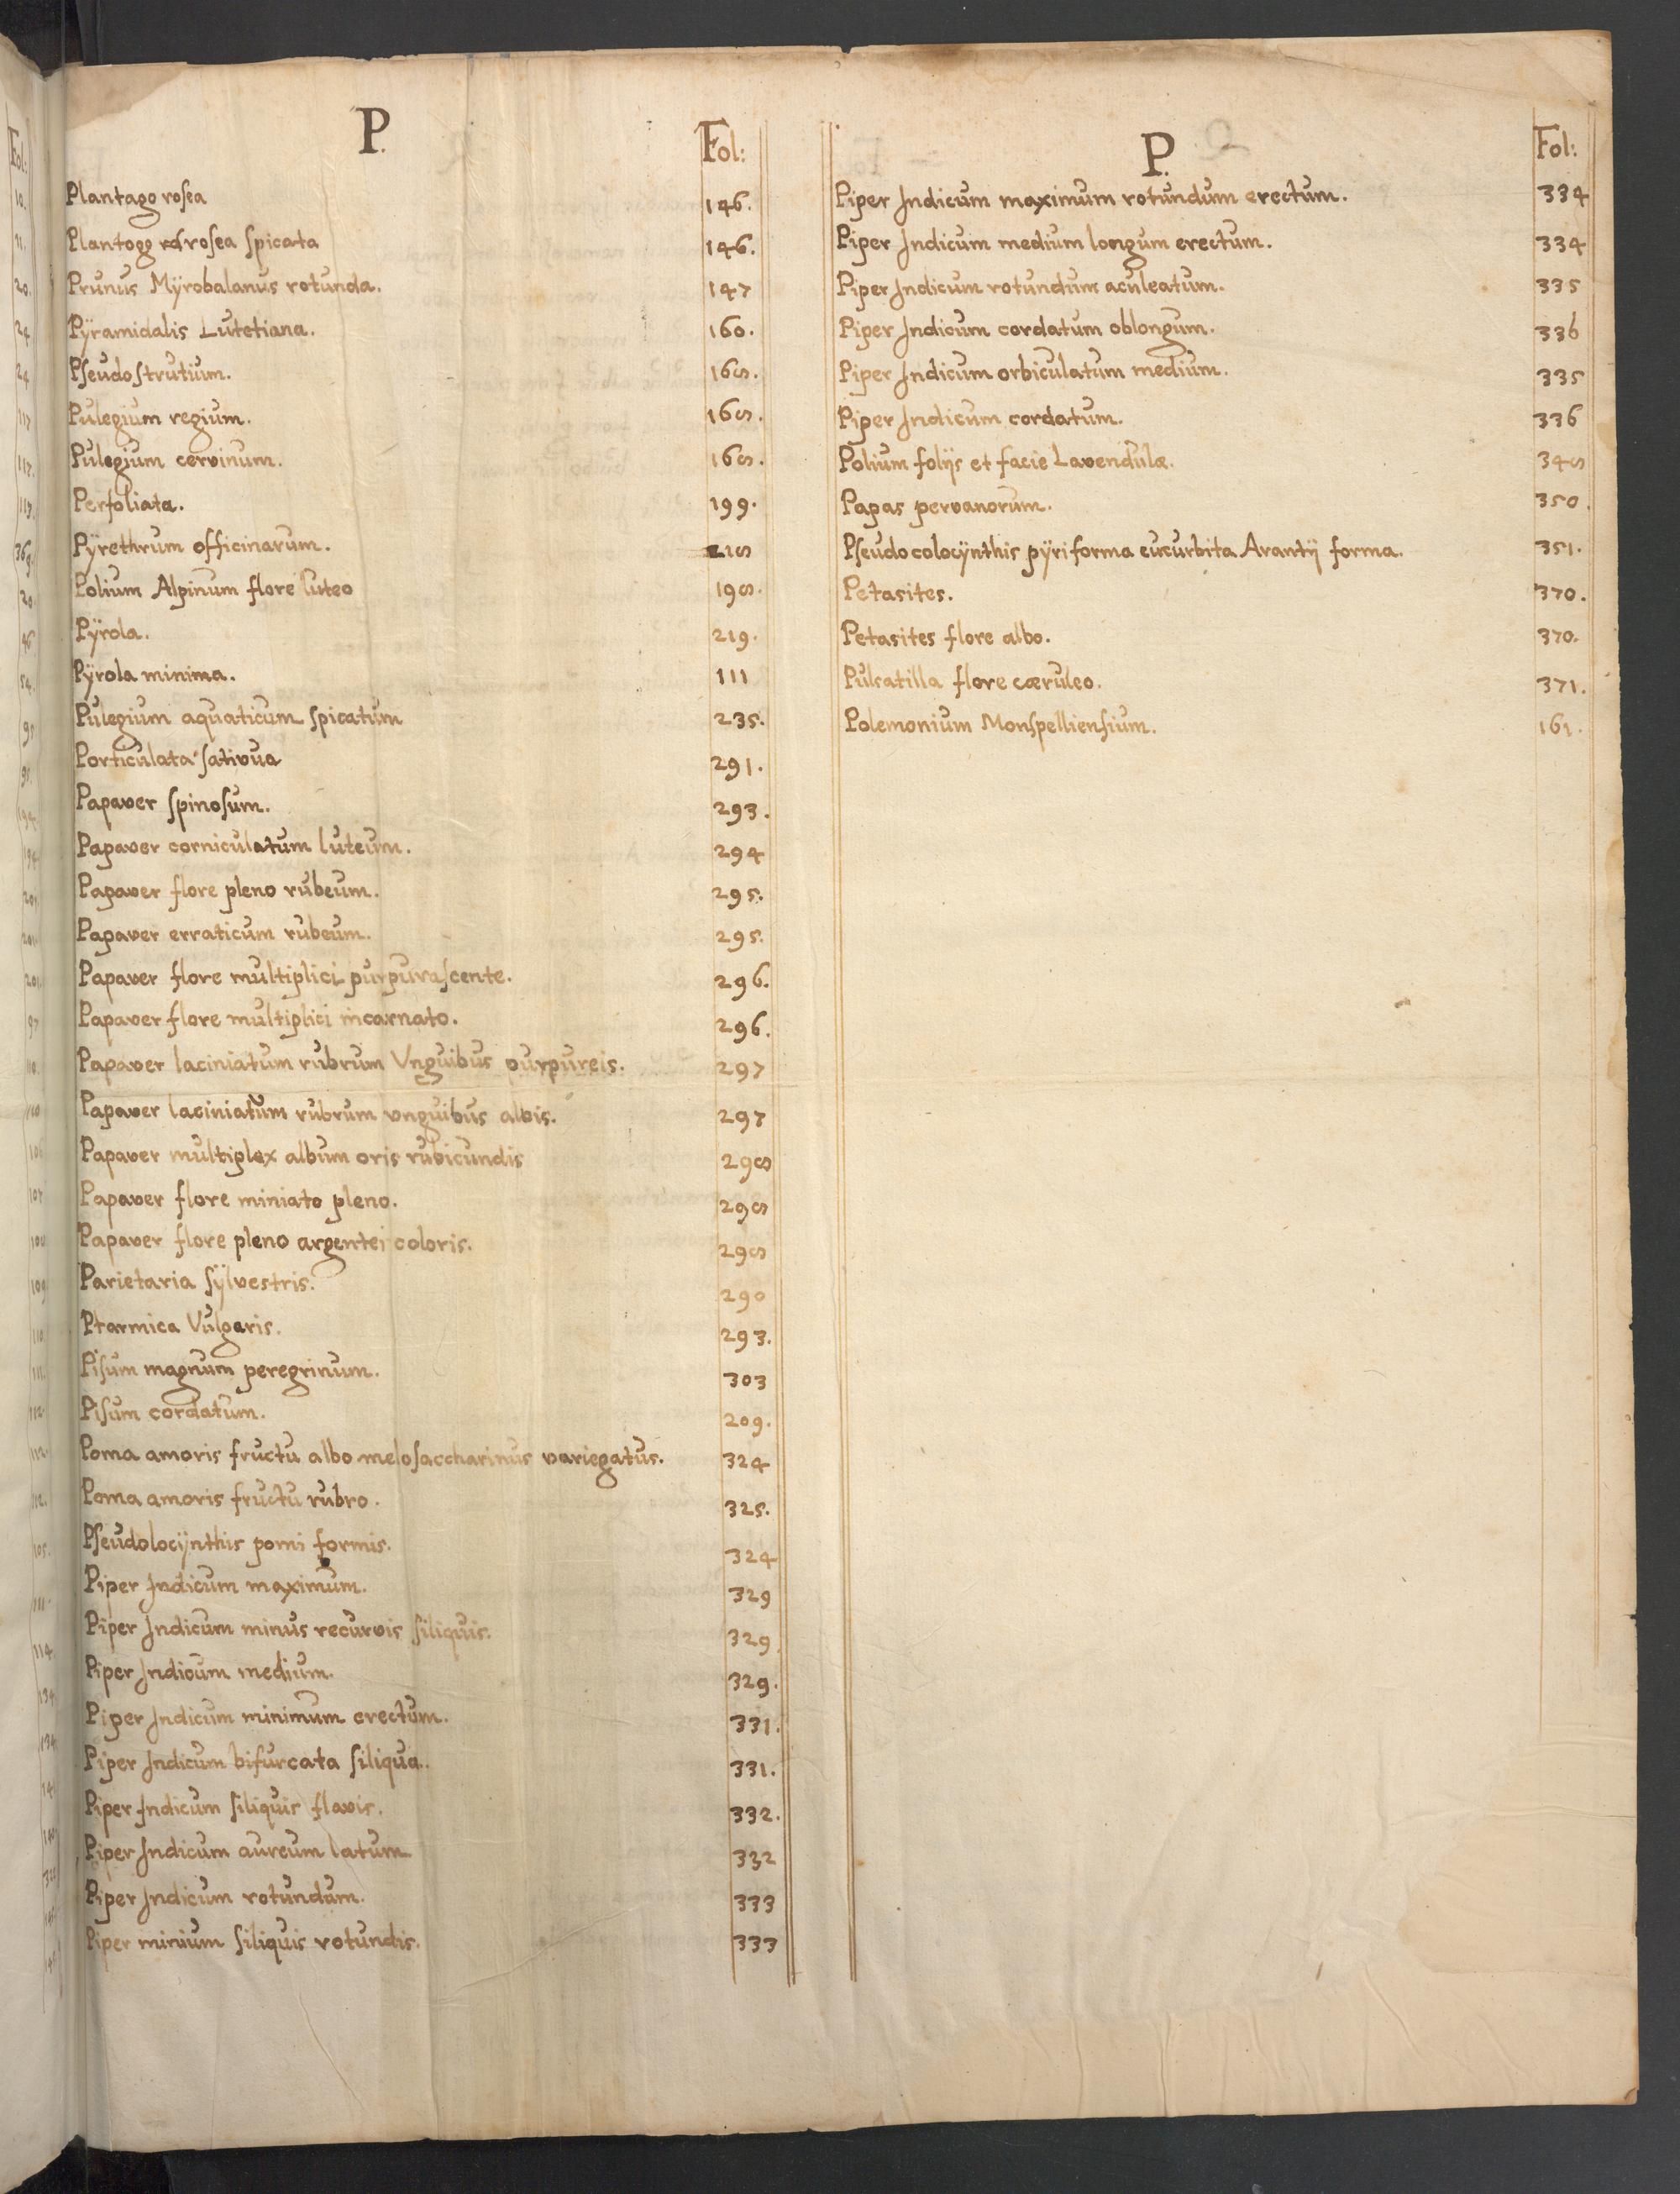 P.
Fol:
Plantago rosea 146.
Plantogo rosea spicata 146.
Prunus Mÿrobalanus rotunda. 147
Pÿramidalis Lutetiana. 160.
Pseudostrutium. 168.
Pulegium regium. 168.
Pulegium cervinum. 168.
Perfoliata. 199.
Pÿrethrum officinarum. 218
Polium Alpinum flore luteo 198.
Pÿrola. 219.
Pÿrola minima. 111
Pulegium aquaticum spicatum 235.
Porticulata sativua 291.
Papaver spinosum. 293.
Papaver corniculatum luteum. 294
Papaver flore pleno rubeum. 295.
Papaver erraticum rubeum. 295.
Papaver flore multiplici purpurascente. 296.
Papaver flore multiplici incarnato. 296.
Papaver laciniatum rubrum Vnguibus purpureis. 297
Papaver laciniatum rubrum vnguibus albis. 297
Papaver multiplex album oris rubicundis 298
Papaver flore miniato pleno. 298
Papaver flore pleno argentei coloris. 298
Parietaria sÿlvestris. 290
Ptarmica Vulgaris. 293.
Pisum magnum peregrinum. 303
Pisum cordatum. 209.
Poma amoris fructu albo melosaccharinus variegatus. 324
Poma amoris fructu rubro. 325.
Pseudolocÿnthis pomi formis. 324
Piper Indicum maximum. 329
Piper Indicum minus recurvis siliquis. 329
Piper Indicum medium. 329.
Piper Indicum minimum erectum. 331.
Piper Indicum bifurcata siliqua. 331.
Piper Indicum siliquis flavis. 332.
Piper Indicum aureum latum 332
Piper Indicum rotundum. 333
Piper minium siliquis rotundis. 333
P.
Fol:
Piper Indicum maximum rotundum erectum. 334
Piper Indicum medium longum erectum. 334
Piper Indicum rotundum aculeatum. 335
Piper Indicum cordatum oblongum. 336
Piper Indicum orbiculatum medium. 335
Piper Indicum cordatum. 336
Polium folijs et facie Lavendulæ. 348
Papas pervanorum. 350.
Pseudocolocÿnthis pÿriforma cucurbita Arantij forma. 351.
Petasites. 370.
Petasites flore albo. 370.
Pulsatilla flore cæruleo. 371.
Polemonium Monspelliensium. 161.